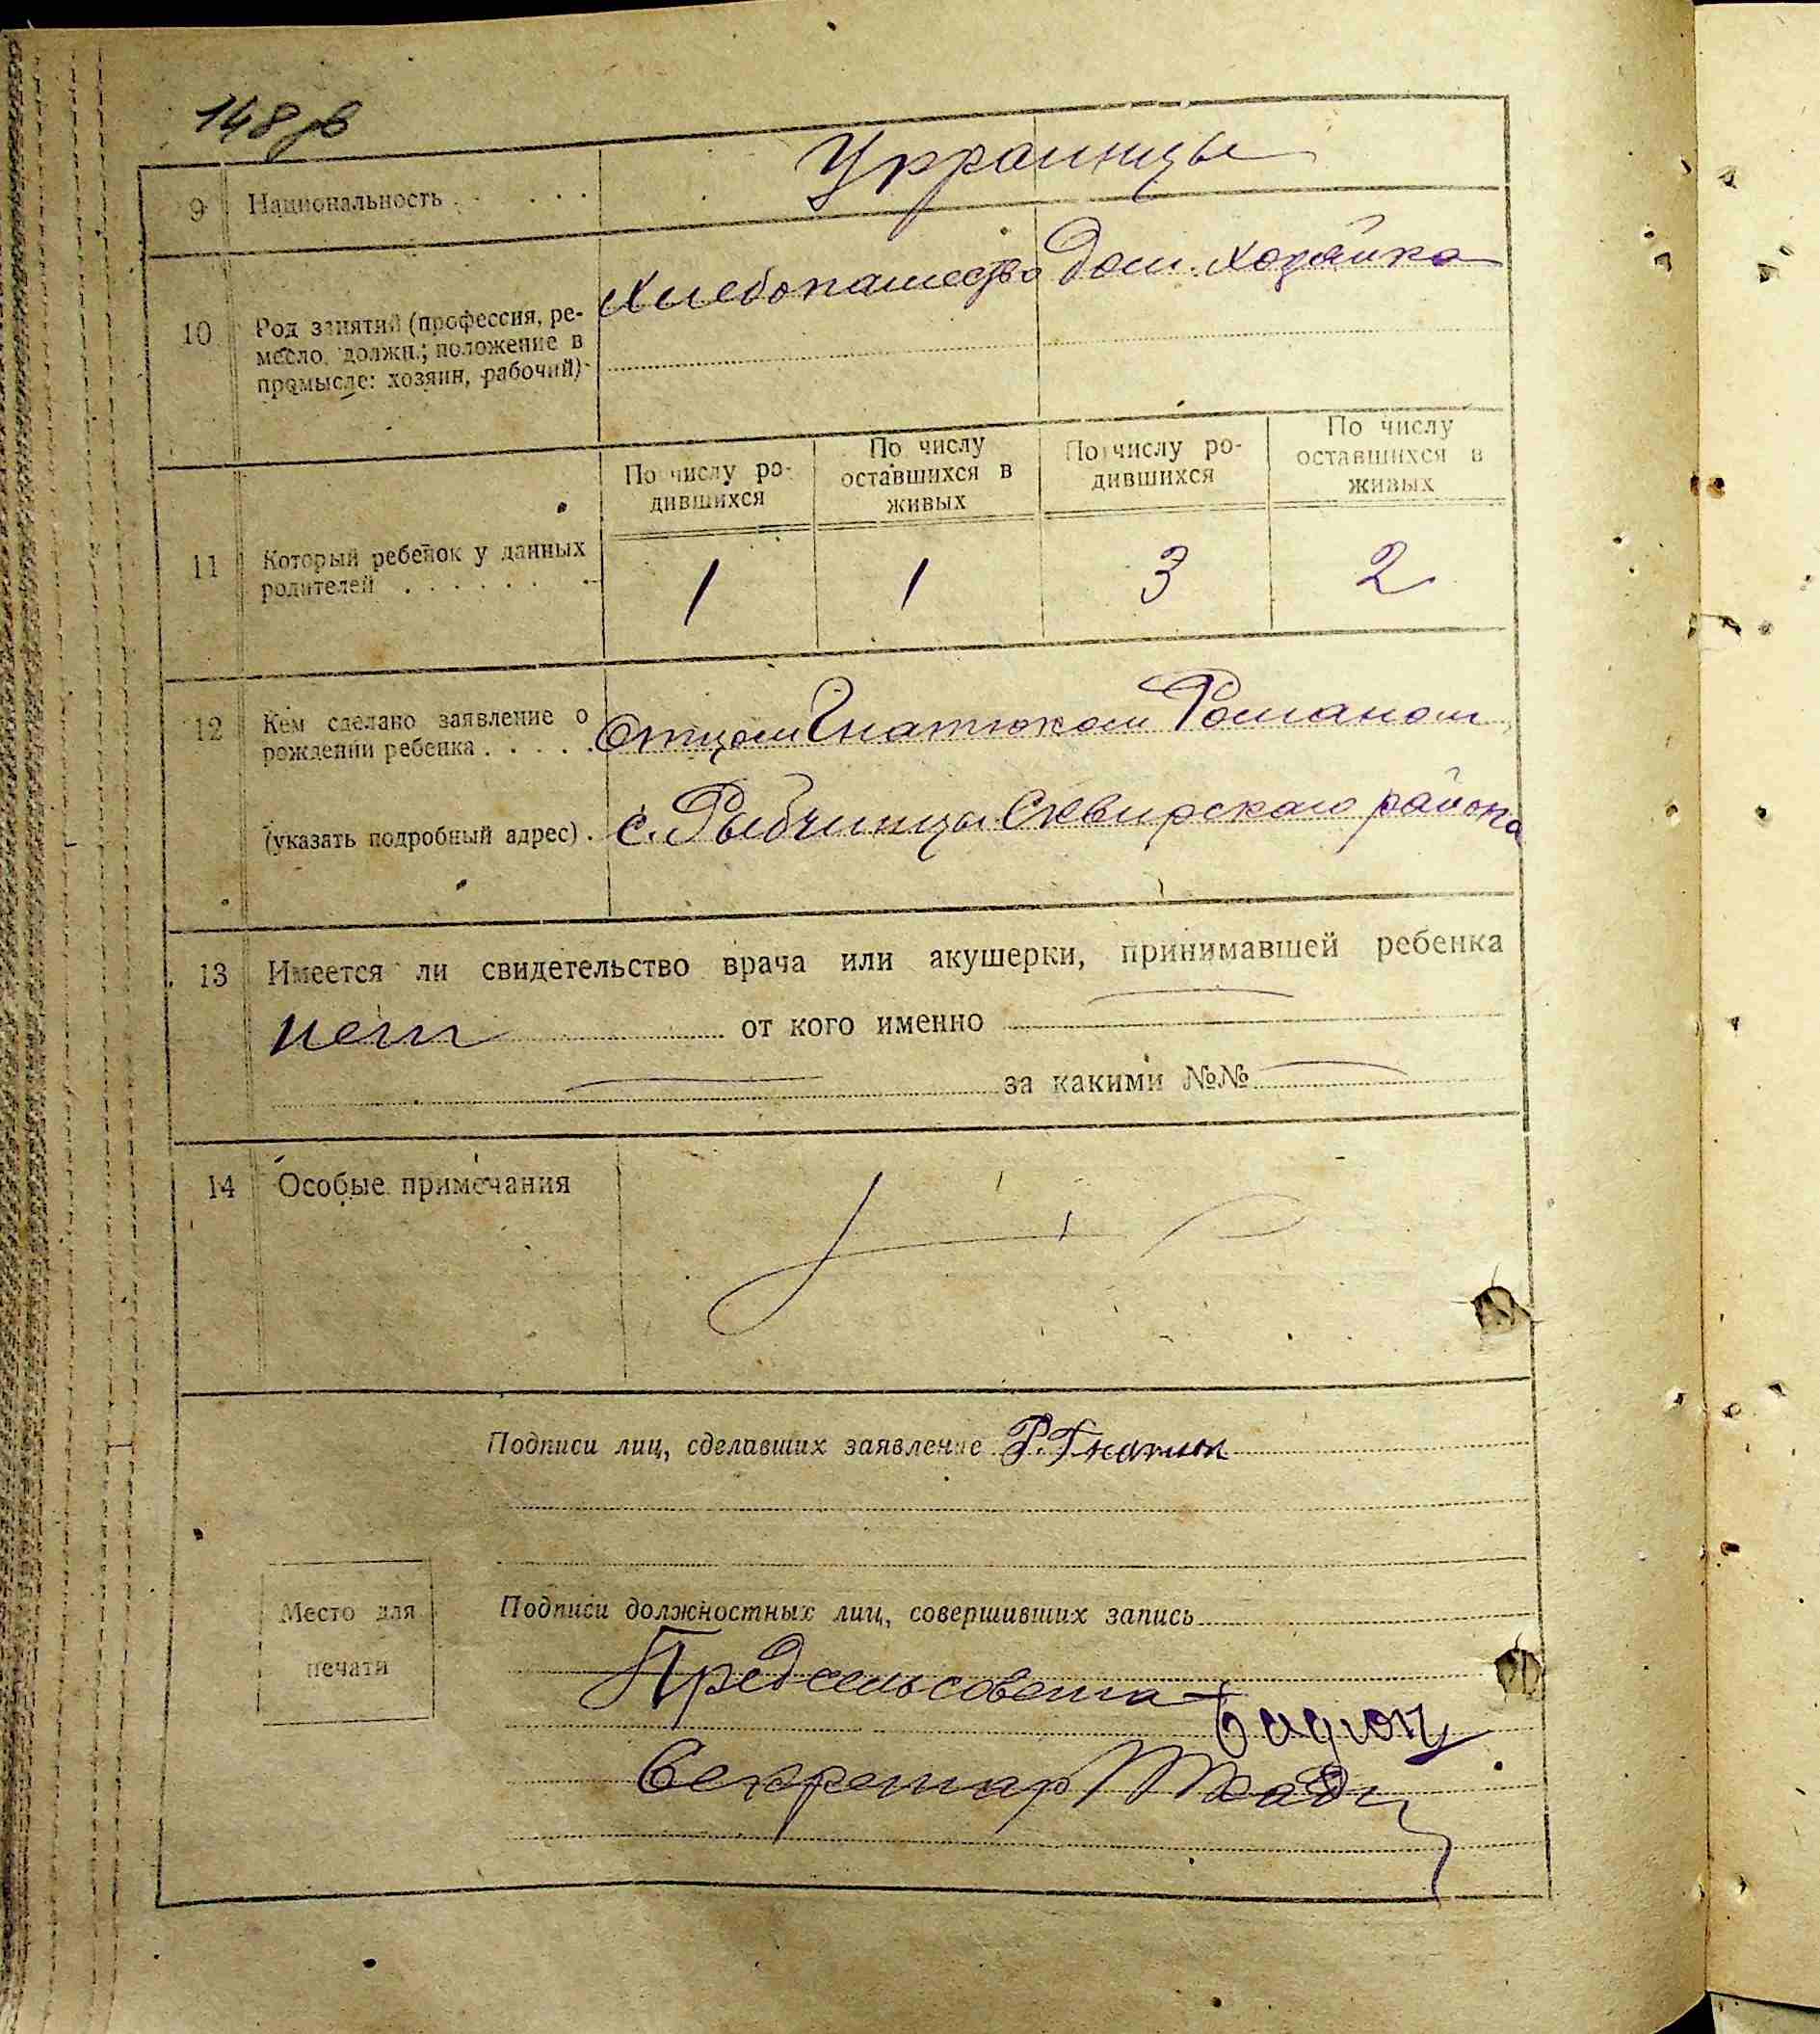 148 об
9 Национальность . . . . . Украинцы
Хлебопашество Дом. хозяйка
10 Род занятий (профессия, ре-
месло, должн.; положение в
промысле: хозяин, рабочий)
По числу ро-
дившихся
По числу
оставшихся в
живых
По числу ро-
дившихся
По числу
оставшихся в
живых
11 Который ребенок у данных
родителей . . . . . . .
1 1 3 2
12 Кем сделано заявление о
рождении ребенка . . . . . Отцом Гнатюком Романом
(указать подробный адрес) . с. Рыбчинцы Сквирскаго района
13 Имеется ли свидетельство врача или акушерки, принимавшей ребенка
нет от кого именно
за какими №№
14 Особые примечания
Подписи лиц, сделавших заявление Р. Гнатюк
Место для
печати
Подписи должностных лиц, совершивших запись
Предсельсовета
Секретар